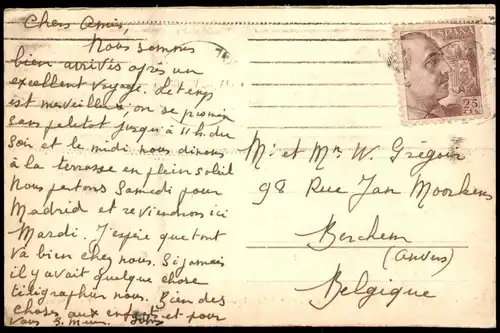 Chers Amis,
Nous sommes
bien arrivés après un
excellent voyage. Le temps
est merveilleux on se promène
sans paletot jusqu'à 11 h. du
Soir et le midi nous dinons
à la terrasse en plein soleil
Nous partons Samedi pour
Madrid et reviendrons ici
Mardi. J'espère que tout
va bien chez nous. Si jamais
il y avait quelque chose
télégraphier nous. Bien des
choses aux enfants et pour
vous
ESPAÑA
25
CTS
Mr et Mme W. Grégoir
98 Rue Jan Moorkens
Berchem
(Anvers)
Belgique